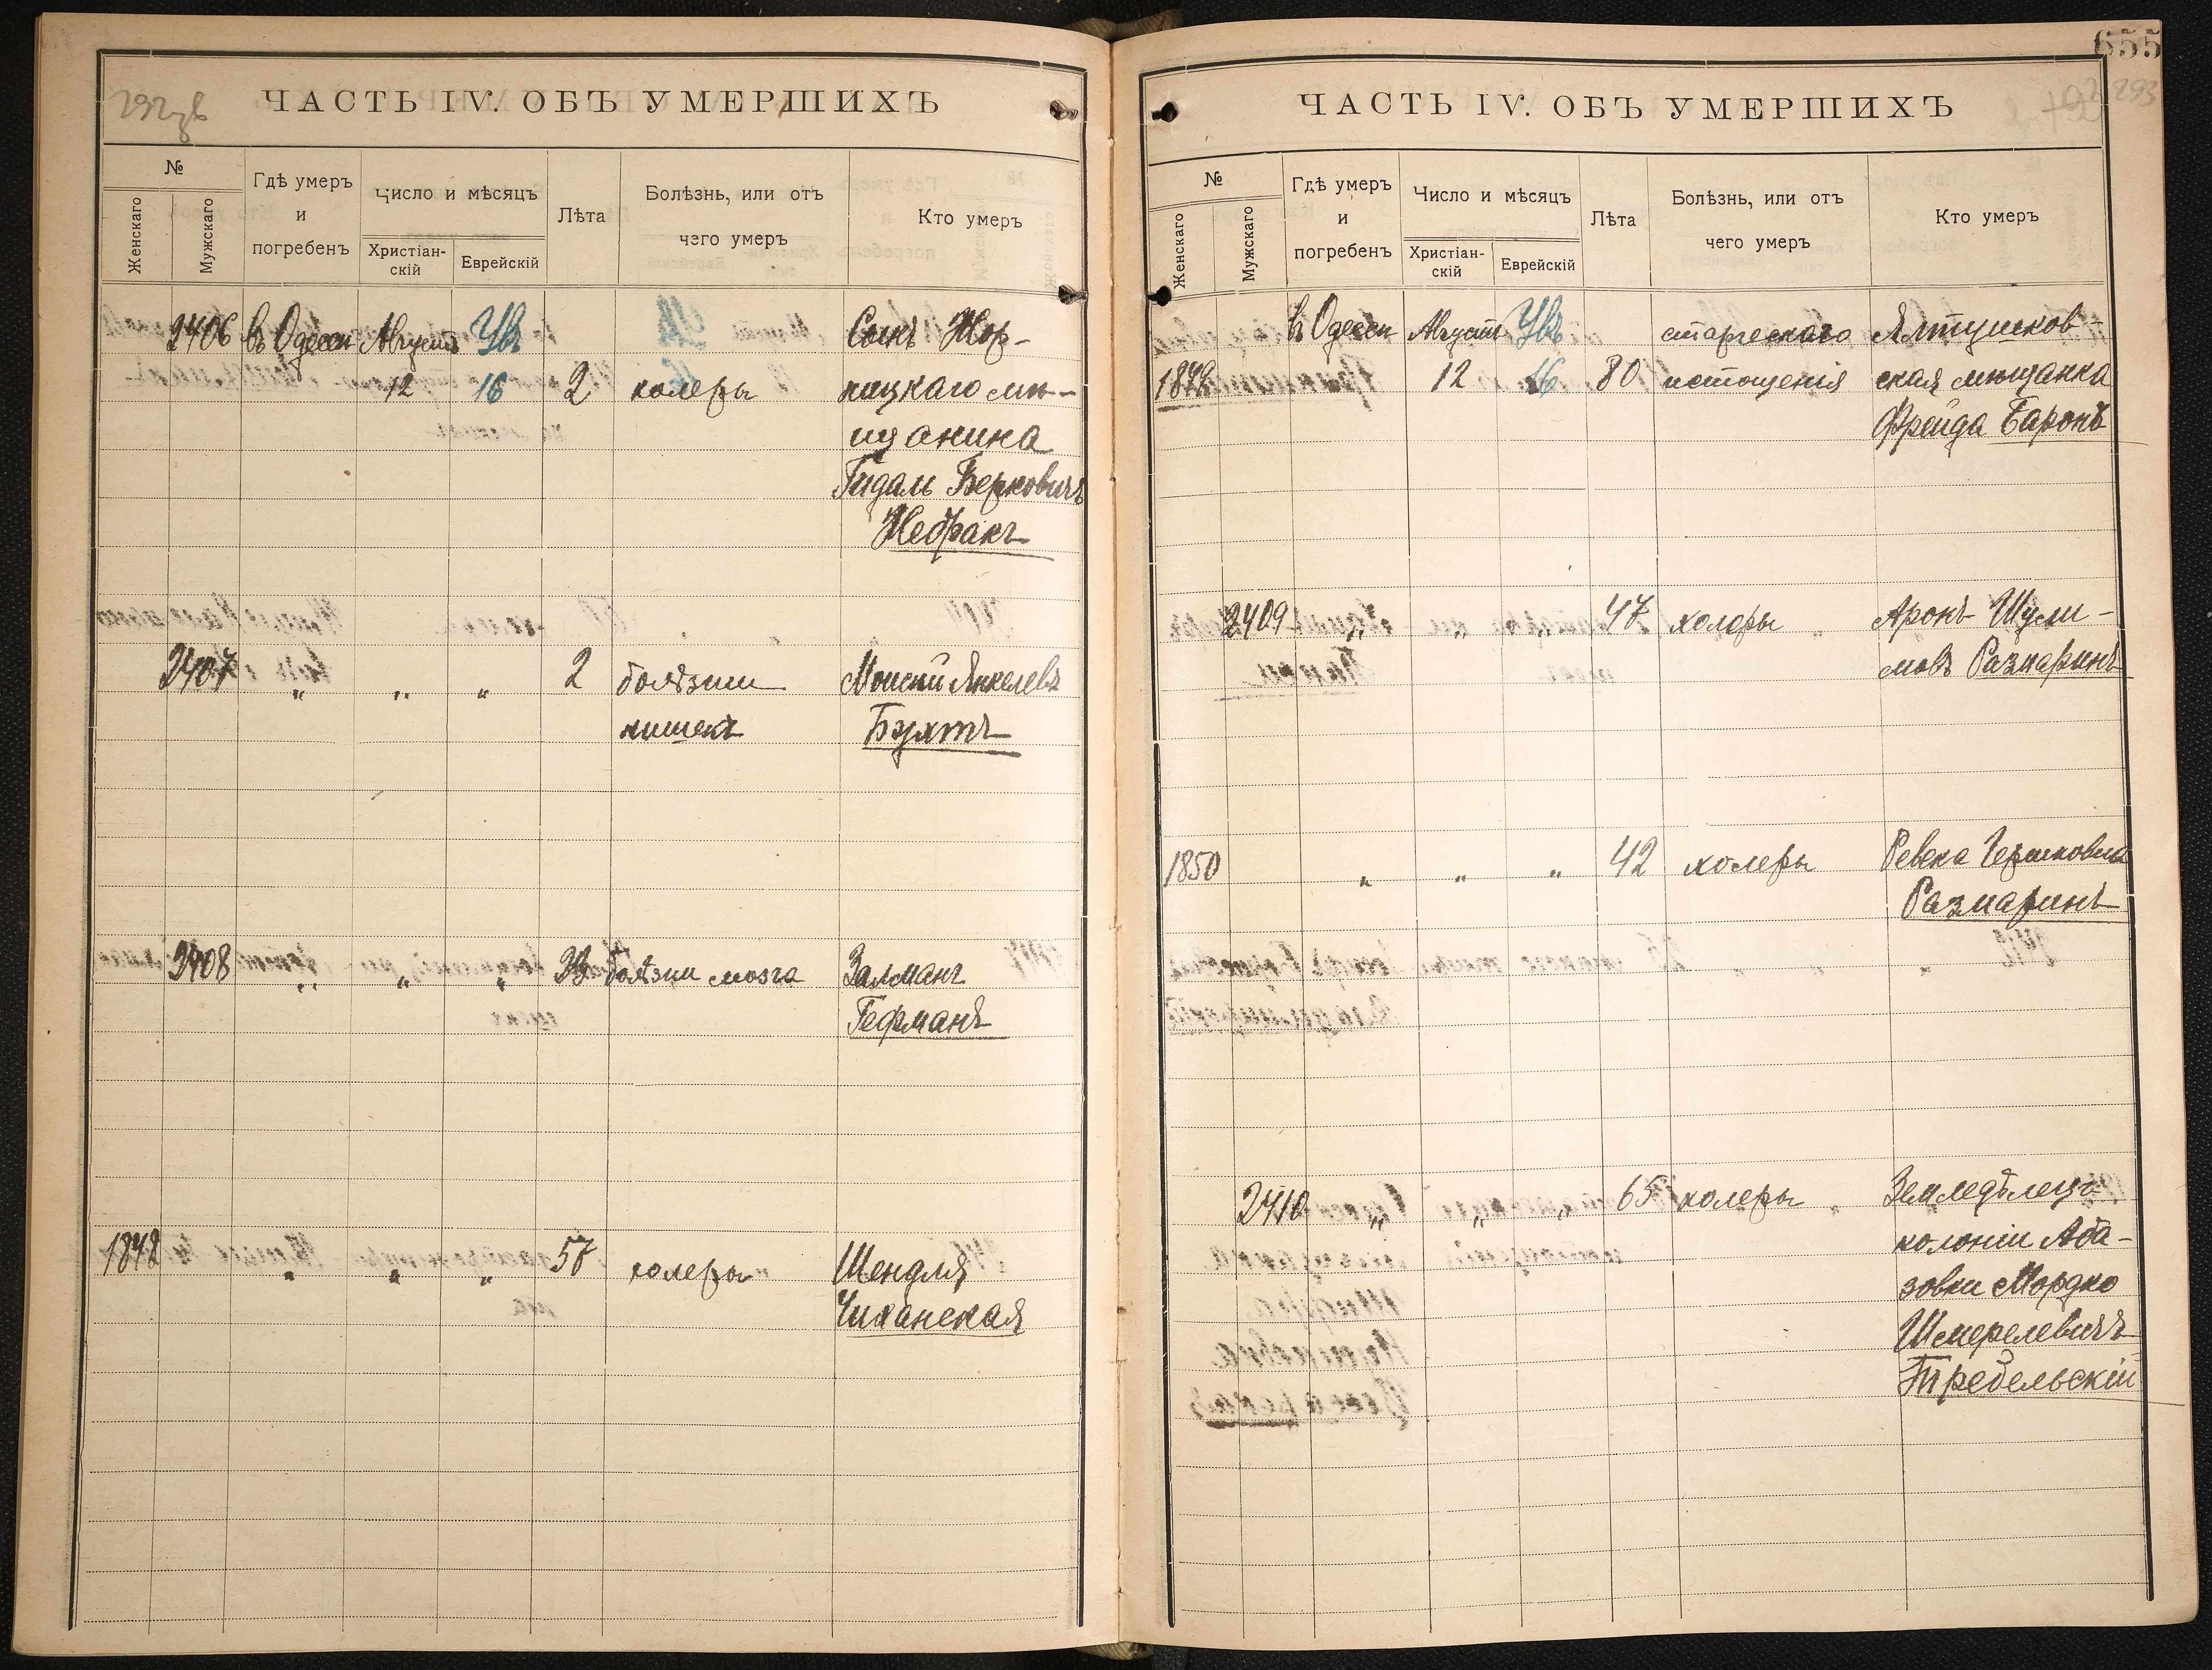 ЧАСТЬ IV. ОБЪ УМЕРШИХЪ
№
Женскаго
Мужскаго
Гдѣ умеръ
и
погребенъ
Число и мѣсяцъ
Христіан-
скій
Еврейскій
Лѣта
Болѣзнь, или отъ
чего умеръ
Кто умеръ
2406 въ Одессѣ Августъ Увъ Сынъ
12 16 2 холеры мѣ-
щанина
Берковичъ
2407 " " " 2 болѣзни Янкелевъ
кишекъ Бухтъ
2408 " " " болѣзни мозга Залманъ
Гефманъ
1848 " " " 57 холеры Шендля
Чиханская
655
293
ЧАСТЬ IV. ОБЪ УМЕРШИХЪ
№
Женскаго
Мужскаго
Гдѣ умеръ
и
погребенъ
Число и мѣсяцъ
Христіан-
скій
Еврейскій
Лѣта
Болѣзнь, или отъ
чего умеръ
Кто умеръ
въ Одессѣ Августъ Увъ старческаго Ялтушков-
12 16 80 истощенія ская мѣщанка
Фрейда Баронъ
2409 " " " 47 холеры Аронъ Шули-
мовъ Размаринъ
1850 " " " 42 холеры Ревека Гершковна
Размаринъ
2410 " " " 65 холеры Земледѣлецъ
колоніи Аба-
зовки Мордко
Шмерелевичъ
Требельскій